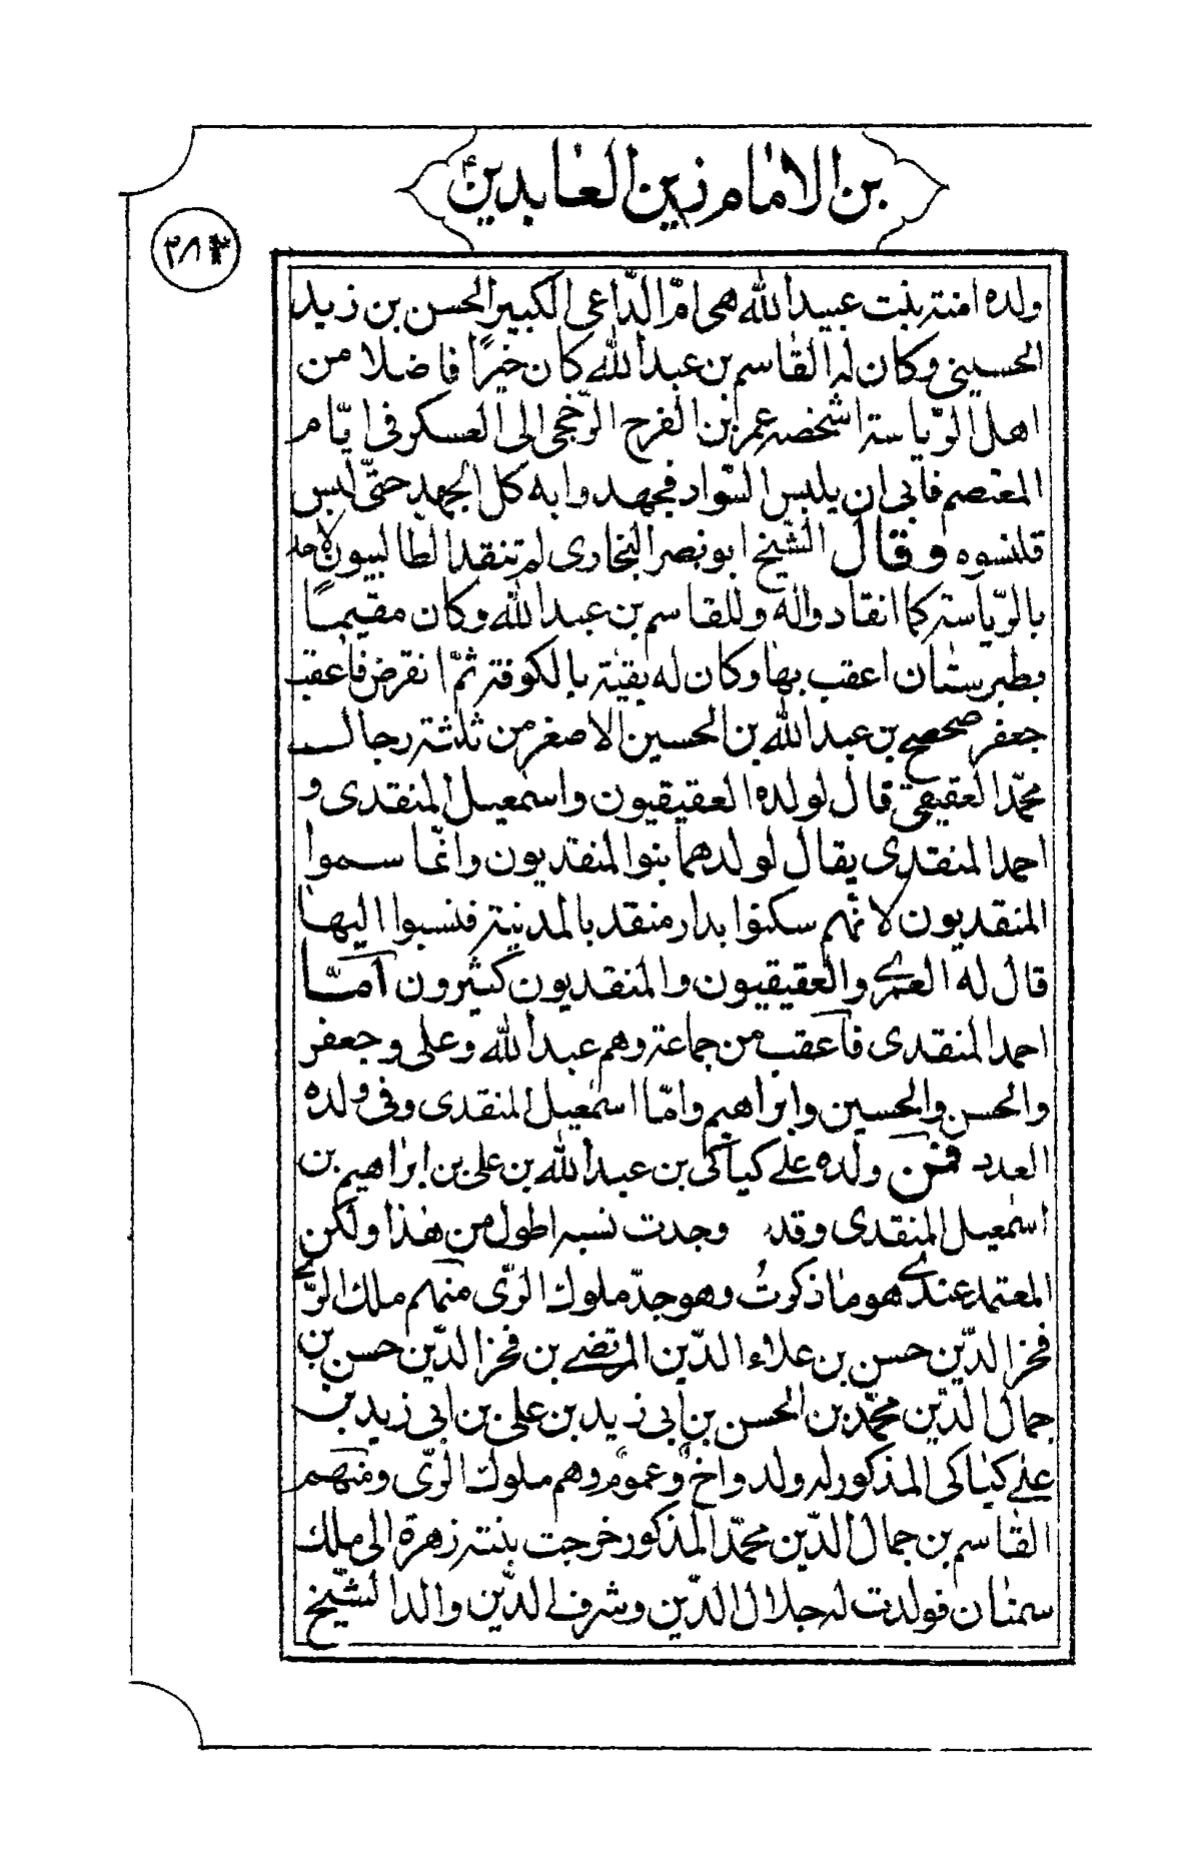 بن الامام زين العابدين ع
٢٨٣
ولده امنة بنت عبيدالله هى امّ الدّاعى الكبير الحسن بن زيد
الحسينى وكان له القاسم بن عبدالله كان خيرًا فاضلا من
اهل الرّياسة اشخصه عمر بن الفرج الرّخجى الى العسكر فى ايّام
المعتصم فابى ان يلبس السّواد فجهدوا به كل الجهد حتّى لبس
قلنسوه وقال الشّيخ ابو نصر البخارى لم تنقد الطالبيون لاحد
بالرّياسة كما انقادوا له وللقاسم بن عبدالله وكان مقيمًا
بطبرستان اعقب بها وكان له بقيّة بالكوفة ثمّ انقرض فاعقب
جعفر صحصح بن عبدالله بن الحسين الاصغر من ثلثة رجال
محمّد العقيقى قال لولده العقيقيون واسمعيل المنقدى و
احمد المنقدى يقال لولدهما بنوا المنقديون وانّما سموا
المنقديون لانّهم سكنوا بدار منقد بالمدينة فنسبوا اليها
قال له العمرى والعقيقيون والمنقديون كثيرون امّا
احمد المنقدى فاعقب من جماعة وهم عبدالله وعلى وجعفر
والحسن والحسين وابراهيم وامّا اسمعيل المنقدى وفى ولده
العدد فمن ولده على كياكى بن عبدالله بن على بن ابراهيم بن
اسمعيل المنقدى وقد وجدت نسبه اطول من هذا ولكن
المعتمد عندى هو ما ذكرتُ وهو جدّ ملوك الرّى منهم ملك الرّى
فخر الدّين حسن بن علاء الدّين المرتضى بن فخر الدّين حسن بن
جمال الدّين محمّد بن الحسن بن ابى زيد بن على بن ابى زيد بن
على كياكى المذكور له ولد واخ وعموم وهم ملوك الرّى ومنهم
القاسم بن جمال الدّين محمّد المذكور خرجت بنته زهرة الى ملك
سمنان فولدت له جلال الدّين وشرف الدّين والد الشّيخ